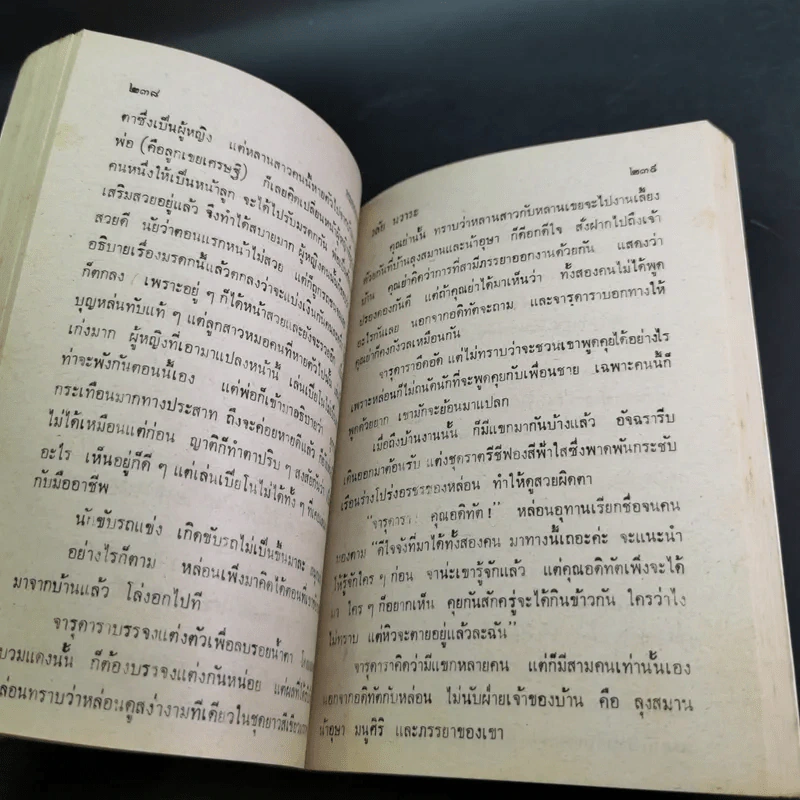 ๒๓๘
ตาซึ่งเป็นผู้หญิง แต่หลานสาวคนนี้หายตัวไป
พ่อ (คือลูกเขยเศรษฐี) ก็เลยคิดเปลี่ยนหน้าผู้หญิง
คนหนึ่งให้เป็นหน้าลูก จะได้ไปรับมรดกกัน
เสริมสวยอยู่แล้ว จึงทำได้สบายมาก ผู้หญิงคนนั้น
สวยดี นัยว่าตอนแรกหน้าไม่สวย แต่ก็ถูก
อธิบายเรื่องมรดกนี้แล้วตกลงว่าจะแบ่งเงินกัน
ก็ตกลง เพราะอยู่ ๆ ก็ได้หน้าสวยและยังจะรวย
บุญหล่นทับแท้ ๆ แต่ลูกสาวหมอคนที่หายตัวไปนั้น
เก่งมาก ผู้หญิงที่เอามาแปลงหน้านี้ เล่นเปียโนไม่
ท่าจะพังกันตอนนี้เอง แต่พ่อก็เข้ามาอธิบายว่า
กระเทือนมากทางประสาท ถึงจะค่อยหายดีแล้ว
ไม่ได้เหมือนแต่ก่อน ญาติก็ทำตาปริบ ๆ สงสัยกัน
อะไร เห็นอยู่ก็ดี ๆ แต่เล่นเปียโนไม่ได้ทั้ง ๆ ที่เคย
กับมืออาชีพ
นักขับรถแข่ง เกิดขับรถไม่เป็นขึ้นมาละ
อย่างไรก็ตาม หล่อนเพิ่งมาคิดได้ตอนที่
มาจากบ้านแล้ว โล่งอกไปที
จารุดาราบรรจงแต่งตัวเพื่อลบรอยน้ำตา
บวมแดงนั้น ก็ต้องบรรจงแต่งกันหน่อย แต่ผลที่ได้
หล่อนทราบว่าหล่อนดูสง่างามทีเดียวในชุดยาวสีเขียว
๒๓๙
วลัย นวาระ
คุณย่านั้น ทราบว่าหลานสาวกับหลานเขยจะไปงานเลี้ยง
ด้วยกันที่บ้านลุงสมานและน้าอุษา ก็ดีอกดีใจ สั่งฝากไปถึงเจ้า
บ้าน คุณย่าคิดว่าการที่สามีภรรยาออกงานด้วยกัน แสดงว่า
ปรองดองกันดี แต่ถ้าคุณย่าได้มาเห็นว่า ทั้งสองคนไม่ได้พูด
อะไรกันเลย นอกจากอดิทัตจะถาม และจารุดาราบอกทางให้
คุณย่าก็คงกังวลเหมือนกัน
จารุดาราอึดอัด แต่ไม่ทราบว่าจะชวนเขาพูดคุยได้อย่างไร
เพราะหล่อนก็ไม่ถนัดนักที่จะพูดคุยกับเพื่อนชาย เฉพาะคนนี้ก็
พูดด้วยยาก เขามักจะย้อนมาแปลก
เมื่อถึงบ้านงานนั้น ก็มีแขกมากันบ้างแล้ว อัจฉรารีบ
เดินออกมาต้อนรับ แต่งชุดราตรีชีฟองสีฟ้าใสซึ่งพาดพันกระชับ
เรือนร่างโปร่งอรชรของหล่อน ทำให้ดูสวยผิดตา
"จารุดารา! คุณอดิทัต!" หล่อนอุทานเรียกชื่อจนคน
มองตาม "ดีใจจังที่มาได้ทั้งสองคน มาทางนี้เถอะค่ะ จะแนะนำ
ให้รู้จักใคร ๆ ก่อน จาน่ะเขารู้จักแล้ว แต่คุณอดิทัตเพิ่งจะได้
มา ใคร ๆ ก็อยากเห็น คุยกันสักครู่จะได้กินข้าวกัน ใครว่าไง
ไม่ทราบ แต่หิวจะตายอยู่แล้วละฉัน"
จารุดาราคิดว่ามีแขกหลายคน แต่ก็มีสามคนเท่านั้นเอง
นอกจากอดิทัตกับหล่อน ไม่นับฝ่ายเจ้าของบ้าน คือ ลุงสมาน
น้าอุษา มนูศิริ และภรรยาของเขา